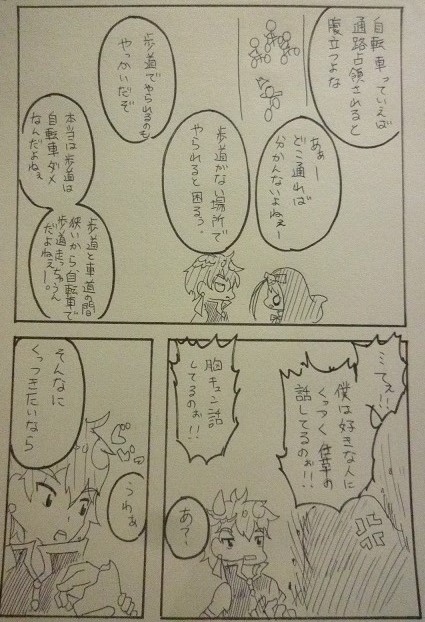 自転車っていえば
通路占領されると
腹立つよな
あぁー
どこ通れば
分かんないよねぇー
歩道でやられるのも
やっかいだぞ
歩道がない場所で
やられると困るぅ。
本当は歩道は
自転車ダメ
なんだよねぇ
歩道と車道の間
狭いから自転車で
歩道走っちゃうん
だよねぇー。
ミてぇ!!
僕は好きな人に
くっつく仕草の
話してるのぉ!!
胸キュン話
してるのぉ!!
あ?
そんなに
くっつきたいなら
うわぁ